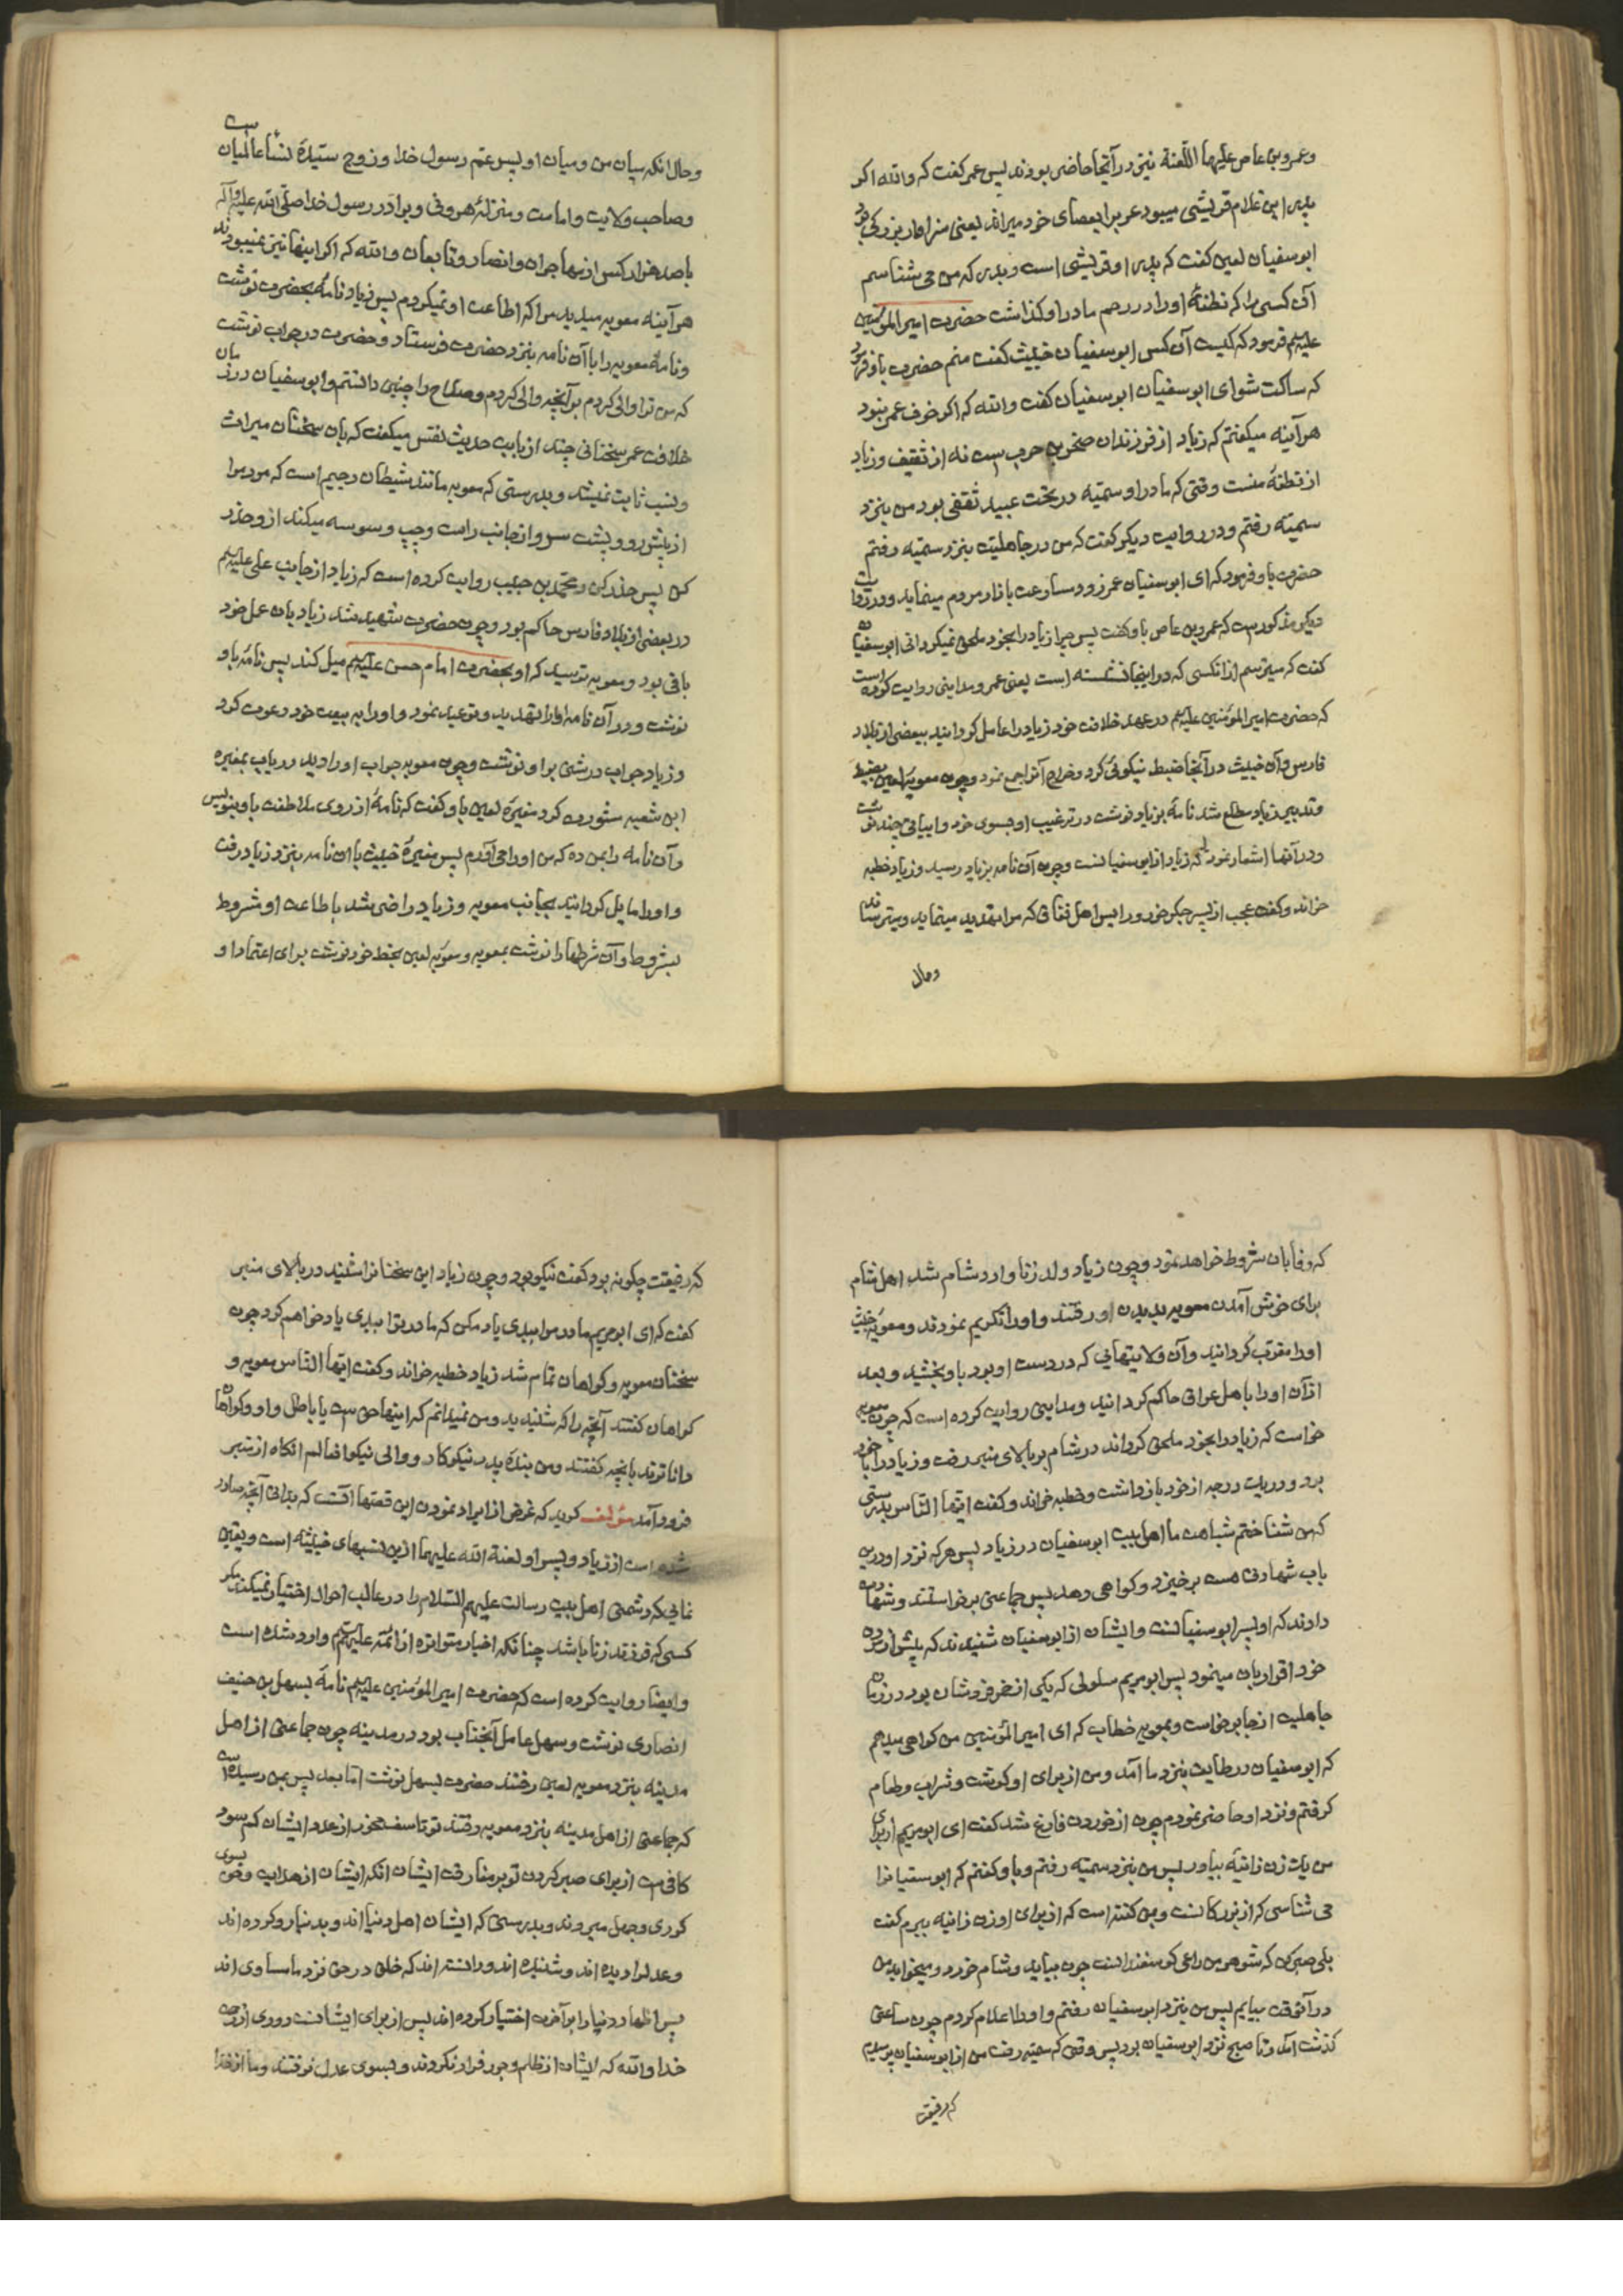 وعمرو بن عاص علیهما اللّعنة نیز در آنجا حاضر بودند پس عمر کفت که والله اکر
پدر این غلام قریشی میبود عرب را بعصای خود میراند یعنی سزاوار بزرکی بود
ابوسفیان لعین کفت که پدر او قریشی است و پدر که من می شناسم
آن کسی را که نطفهٔ او را در رحم مادر او کذاشت حضرت امیرالمؤمنین
علیهم فرمود که کیست آن کس ابوسفیان خبیث کفت منم حضرت باو فرمود
که ساکت شو ای ابوسفیان ابوسفیان کفت والله که اکر خوف عمر نبود
هرآینه میکفتم که زیاد از فرزندان صخر بن حرب است نه از ثقیف و زیاد
از نطفهٔ منست وقتی که مادر او سمیّه در تحت عبید ثقفی بود من بنزد
سمیّه رفتم و در روایت دیکر کفت که من در جاهلیت بنزد سمیّه رفتم
حضرت باو فرمود که ای ابوسفیان عمر زود مسارعت بازار مردم مینماید و در روایت
دیکر مذکورست که عمرو بن عاص باو کفت پس چرا زیاد را بخود ملحق نمیکردانی ابوسفیان
کفت که میترسم از انکسی که در اینجا نشسته است یعنی عمر و مداینی روایت کرده است
که حضرت امیرالمؤمنین علیهم در عهد خلافت خود زیاد را عامل کردانید ببعضی از بلاد
فارس و آن خبیث در آنجا ضبط نیکوئی کرد و خراج آنرا جمع نمود و چون معویهٔ لعین بضبط
و تدبیر زیاد مطلع شد نامهٔ بزیاد نوشت در ترغیب او بسوی خود و ابیاتی چند نوشت
و در آنها اشعار نمود که زیاد از ابوسفیانست و چون آن نامه بزیاد رسید و زیاد خطبه
خواند و کفت عجب از پسر جکرخور و رایس اهل نفاق که مرا تهدید مینماید و میترساند
وحال
وحال انکه میان من و میان او پسر عمّ رسول خدا و زوج سیّدهٔ نساء عالمیان است
و صاحب ولایت و امامت و منزلهٔ هرون و برادر رسول خدا صلّی الله علیه و آله
با صد هزار کس از مهاجران و انصار و تابعان والله که اکر اینها نیز نمیبودند
هرآینه معویه میدید مرا که اطاعت او نمیکردم پس زیاد نامهٔ بحضرت نوشت
و نامهٔ معویه را با آن نامه بنزد حضرت فرستاد و حضرت در جواب نوشت
که من ترا والی کردم برآنچه والی کردم و صلاح را چنین دانستم و ابوسفیان در زمان
خلافت عمر سخنانی چند از بابت حدیث نفس میکفت که بان سخنان میراث
و نسب ثابت نمیشد و بدرستی که معویه مانند شیطان رجیم است که مرد را
از پیش رو و پشت سر و از جانب راست و چپ وسوسه میکند از و حذر
کن پس حذر کن و محمّد بن حبیب روایت کرده است که زیاد از جانب علی علیهم
در بعضی از بلاد فارس حاکم بود و چون حضرت شهید شد زیاد بان عمل خود
باقی بود و معویه ترسید که او بحضرت امام حسن علیهم میل کند پس نامهٔ باو
نوشت و در آن نامه او را تهدید و توعید نمود و او را به بیعت خود دعوت کرد
و زیاد جواب درشتی باو نوشت و چون معویه جواب او را دید در باب بمغیره
ابن شعبه مشورت کرد مغیرهٔ لعین باو کفت که نامهٔ از روی ملاطفت باو بنویس
و آن نامه را بمن ده که من او را می آورم پس مغیرهٔ خبیث با ان نامه بنزد زیاد رفت
و او را مایل کردانید بجانب معویه و زیاد راضی شد باطاعت او مشروط
بشروط و آن شرطها را نوشت بمعویه و معویهٔ لعین بخط خود نوشت برای اعتماد او
که وفا بان شروط خواهد نمود و چون زیاد ولد زنا وارد شام شد اهل شام
برای خوش آمدن معویه بدیدن او رفتند و او را تکریم نمودند و معویهٔ خبیث
او را مقرّب کردانید و آن ولایتهایی که در دست او بود باو بخشید و بعد
از آن او را باهل عراق حاکم کردانید و مداینی روایت کرده است که چون معویه
خواست که زیاد را بخود ملحق کرداند در شام بر بالای منبر رفت و زیاد را با خود
برد و در یک درجه از خود بازداشت و خطبه خواند و کفت ایّها النّاس بدرستی
که من شناختم شباهت ما اهل بیت ابوسفیان در زیاد پس هر که نزد او درین
باب شهادتی هست برخیزد و کواهی دهد پس جماعتی برخواستند و شهادت
دادند که او پسر ابوسفیانست و ایشان از ابوسفیان شنیدند که پیش از مردن
خود اقرار بان مینمود پس ابومریم سلولی که یکی از خمرفروشان بود در زمان
جاهلیت از جا برخواست و بمعویه خطاب که ای امیرالمؤمنین من کواهی میدهم
که ابوسفیان در طایف بنزد ما آمد و من از برای او کوشت و شراب و طعام
کرفتم و نزد او حاضر نمودم چون از خوردن فارغ شد کفت ای ابومریم از برای
من یک زن زانیهٔ بیاور پس من بنزد سمیّه رفتم و باو کفتم که ابوسفیانرا
می شناسی که از بزرکانست و بمن کفته است که از برای او زن زانیه ببرم کفت
بلی صبر کن که شوهر من راعی کوسفندانست چون بیاید و شام خورد و بخوابد من
در آنوقت بیایم پس من بنزد ابوسفیان رفتم و او را اعلام کردم چون ساعتی
کذشت آمد و تا صبح نزد ابوسفیان بود پس وقتی که سمیّه رفت من از ابوسفیان پرسیدم
که رفیقت
که رفیقت چکونه بود کفت نیکو بود و چون زیاد این سخنانرا شنید در بالای منبر
کفت که ای ابومریم مادر مرا ببدی یاد مکن که مادر ترا ببدی یاد خواهم کرد چون
سخنان معویه و کواهان تمام شد زیاد خطبه خواند و کفت ایّها النّاس معویه و
کواهان کفتند آنچه را که شنیدید و من نمیدانم که اینها حق است یا باطل و او و کواهان
داناترند بانچه کفتند و من بندهٔ پدر نیکوکار و والی نیکوافعالم انکاه از منبر
فرود آمد مؤلف کوید که غرض از ایراد نمودن این قصّها آنست که بدانی آنچه صادر
شده است از زیاد و پسر او لعنة الله علیهما ازین نسبهای خبیثه است و یقین
نمایی که دشمنی اهل بیت رسالت علیهم السّلام را در غالب احوال اختیار نمیکند مکر
کسی که فرزند زنا باشد چنانکه اخبار متواتره از ائمّه علیهم وارد شده است
و ایضا روایت کرده است که حضرت امیرالمؤمنین علیهم نامهٔ بسهل بن حنیف
انصاری نوشت و سهل عامل آنجناب بود در مدینه چون جماعتی از اهل
مدینه بنزد معویه لعین رفتند حضرت بسهل نوشت امّا بعد پس بمن رسیده است
که جماعتی از اهل مدینه بنزد معویه رفتند تو تاسف مخور از عدد ایشان کم شود
کافی است از برای صبر کردن تو بر مفارقت ایشان انکه ایشان از هدایت و حق بسوی
کوری و جهل میروند و بدرستی که ایشان اهل دنیااند و بدنیا رو کرده اند
و عدل را دیده اند و شنیده اند و دانسته اند که خلق در حق نزد ما مساوی اند
پس انها دنیا را بر آخرت اختیار کرده اند پس از برای ایشانست دوری از رحمت
خدا والله که ایشان از ظلم و جور فرار نکردند و بسوی عدل نرفتند و ما از خدا